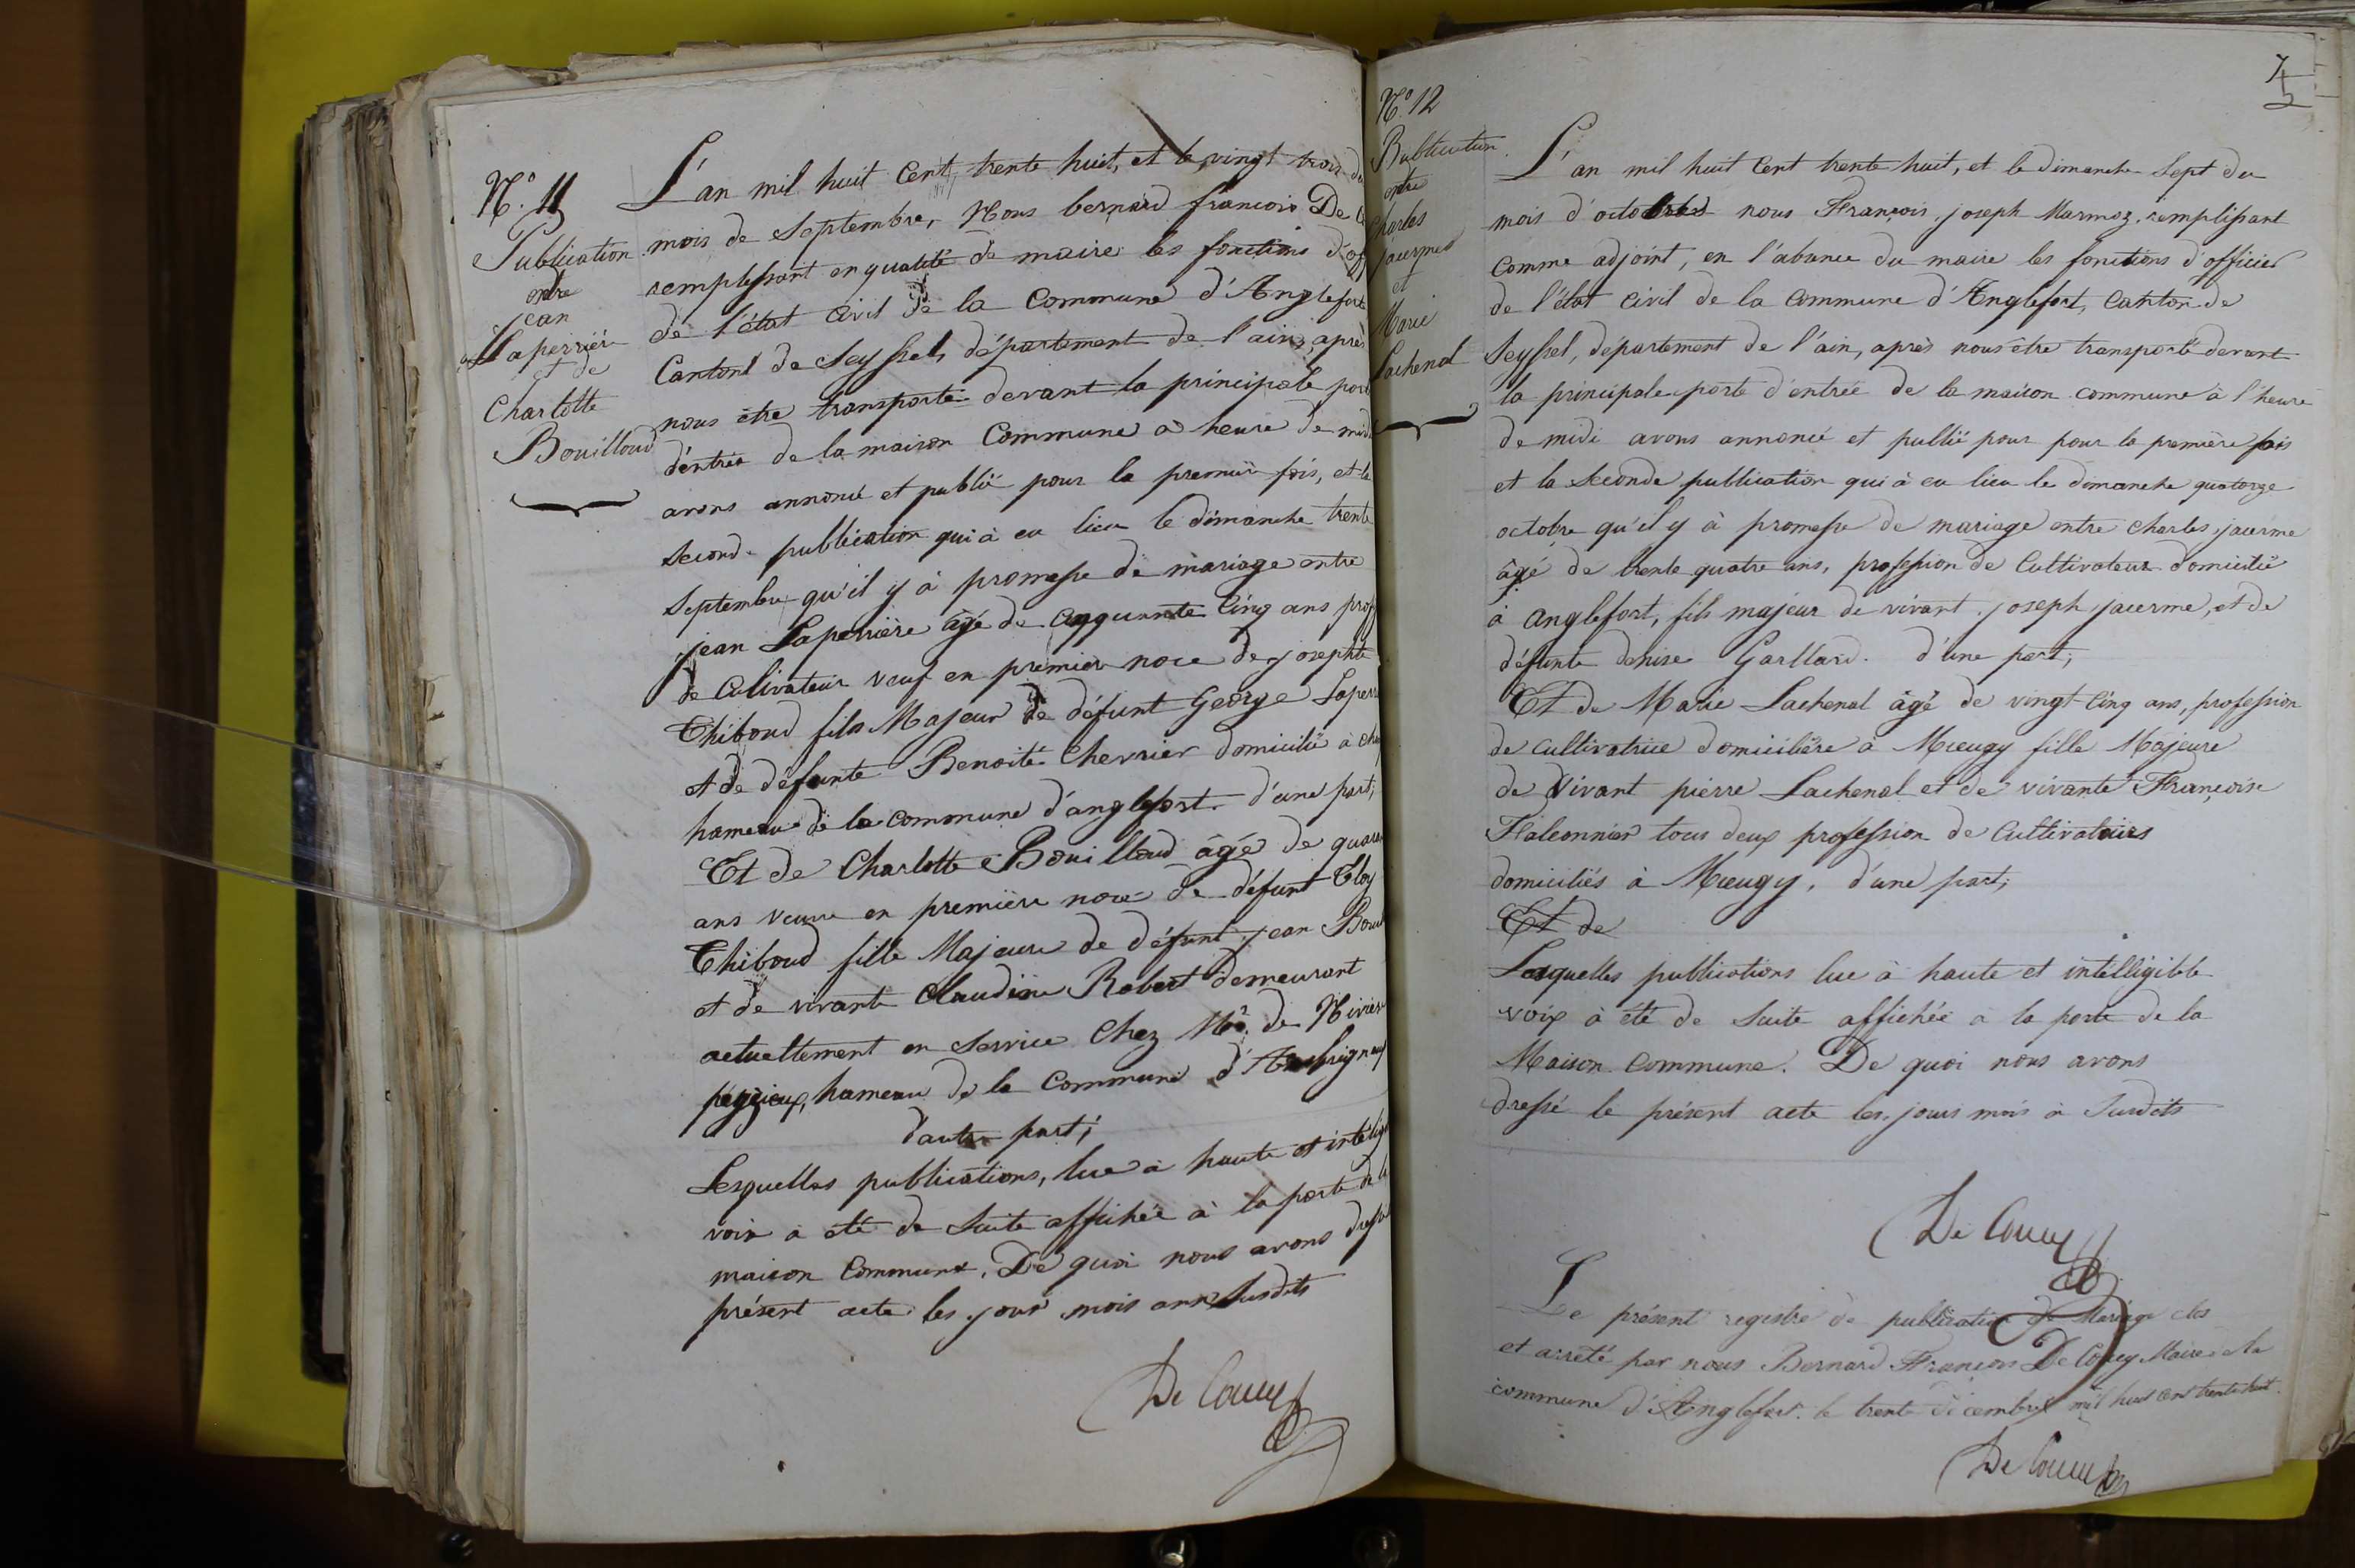 N.° 11
Publication
entre
jean
Laperrière
et de
Charlotte
Bouilloud
L'an mil huit Cent trente huit, et le vingt trois du
mois de Septembre, Nous bernard francois De
remplissant en qualité de maire les fonctions d'of
de l'état Civil de la Commune d'Anglefort
Canton de Seyssel, département de l'ain, après
nous être transporté devant la principale port
d'entrée de la maison Commune a heure de midi
avons annoncé et publié pour la premiere fois, et la
second publication qui à eu lieu le dimanche trente
Septembre qu'il y à promesse de mariage entre
jean Laperrière âgé de cinquante Cinq ans prof
de Culivateur veuf en premier noce de josephte
Thiboud fils Majeur de défunt George Laperr
et de défunte Benoite Chevrier domicilié à
hameau de la commune d'anglefort. d'une part;
Et de Charlotte Bouilloud âgé de quaran
ans veuve en premiere noce de défunt Eloy
Thiboud fille Majeure de défunt jean Boui
et de vivante Claudine Robert demeurant
actuellement en Service Chez Mr. de Nivière
hameau de la Commune d'
d'autre part;
Lesquelles publications, lue à haute et intélig
voix a été de Suite affichée à la porte de la
maison Commune. De quoi nous avons dressé
présent acte les jour mois ans Susdits
De Coucy
7
2
N° 12
Publication
entre
Charles
jacerme
et
Marie
Lachenal
L'an mil huit Cent trente huit, et le dimanche Sept du
mois d'octobre nous François joseph Marmoz, remplissant
comme adjoint, en l'absence du maire les fonctions d'officier
de l'état Civil de la Commune d'Anglefort, Canton de
Seyssel, département de l'ain, après nous être transporté devant
la principale porte d'entrée de la maison commune à l'heure
de midi avons annoncé et publié pour pour la première fois
et la Seconde publication qui à eu lieu le dimanche quatorze
octobre qu'il y à promesse de mariage entre Charles jacerme
âgé de trente quatre ans, profession de Cultivateur domicilié
à anglefort, fils majeur de vivant joseph jacerme, et de
défunte denise Gaillard. d'une part;
Et de Marie Lachenal âgé de vingt Cinq ans, profession
de cultivatrice domicilière à fille Majeure
de Vivant pierre Lachenal et de vivante Françoise
tous deux profession de Cultivateurs
domiciliés à d'une part;
Et de
Lesquelles publications lue à haute et intelligible
voix à été de Suite affichée a la porte de la
Maison Commune. De quoi nous avons
dressé le présent acte les jours mois à Susdits
De Coucy
Le présent registre de publication de Mariage clos
et arrêté par nous Bernard François De Coucy Maire de la
commune d'Anglefort. le trente décembre mil huit cent trente huit.
De Coucy